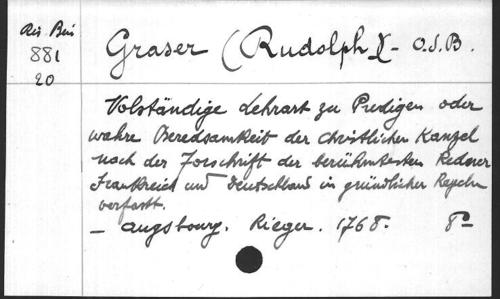 Rés. Bui
881
20
Graser (Rudolph) - O.S.B.
Volständige Lehrart zu Predigen oder
wahre Beredsamkeit der christlichen Kanzel
nach der Forschrift der berühmtesten Redner
Frankreich und Deutschland in gründlicher Regeln
verfasst.
- Augsbourg. Rieger. 1768. 8°